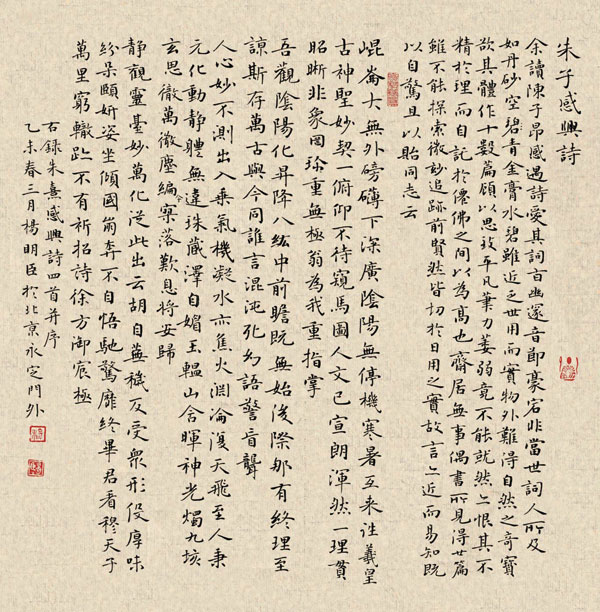 朱子感興詩
余讀陳子昂感遇詩愛其詞旨幽邃音節豪宕非當世詞人所及
如丹砂空碧青金膏水碧雖近乏世用而實物外難得自然之奇寶
欲其體作十數篇顧以思致平凡筆力萎弱竟不能就然亦恨其不
精於理而自託於僊佛之間以為高也齋居無事偶書所見得廿篇
雖不能探索微妙追跡前賢然皆切於日用之實故言亦近而易知既
以自警且以貽同志云
崐崙大無外磅礴下深廣陰陽無停機寒暑互來往羲皇
古神聖妙契一俯仰不待窺馬圖人文已宣朗渾然一理貫
昭晰非象罔珍重無極翁為我重指掌
吾觀陰陽化昇降八紘中前瞻既無始後際那有終理至
諒斯存萬古與今同誰言混沌死幻語驚盲聾
人心妙不測出入乘氣機凝氷亦焦火淵淪復天飛至人秉
元化動靜體無違珠藏澤自媚玉韞山含暉神光燭九垓
玄思徹萬微塵編今寥落歎息將安歸
静觀靈臺妙萬化從此出云胡自蕪穢反受衆形役厚味
紛朵頤妍姿坐傾國崩奔不自悟馳騖靡終畢君看穆天子
萬里窮轍跡不有祈招詩徐方御宸極
右錄朱熹感興詩四首并序
乙未春三月楊明臣於北京永定門外